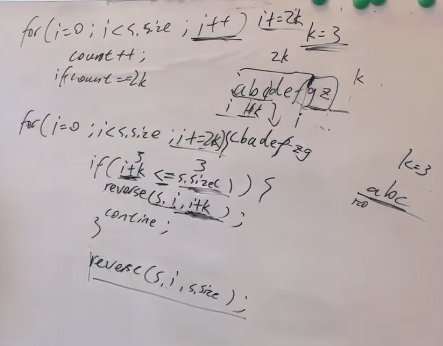 for(i=0 ; i<s.size ; i++) i+=2k
k=3
count++;
if count==2k
2k
k
abcdefgz
i i+k i
for(i=0 ; i<s.size ; i+=2k){
cbadefzg
if( i+k <= s.size( ) ) {
3 3
reverse(s, i, i+k) ;
contine;
}
k=3
abc
reverse(s, i, s.size) ;